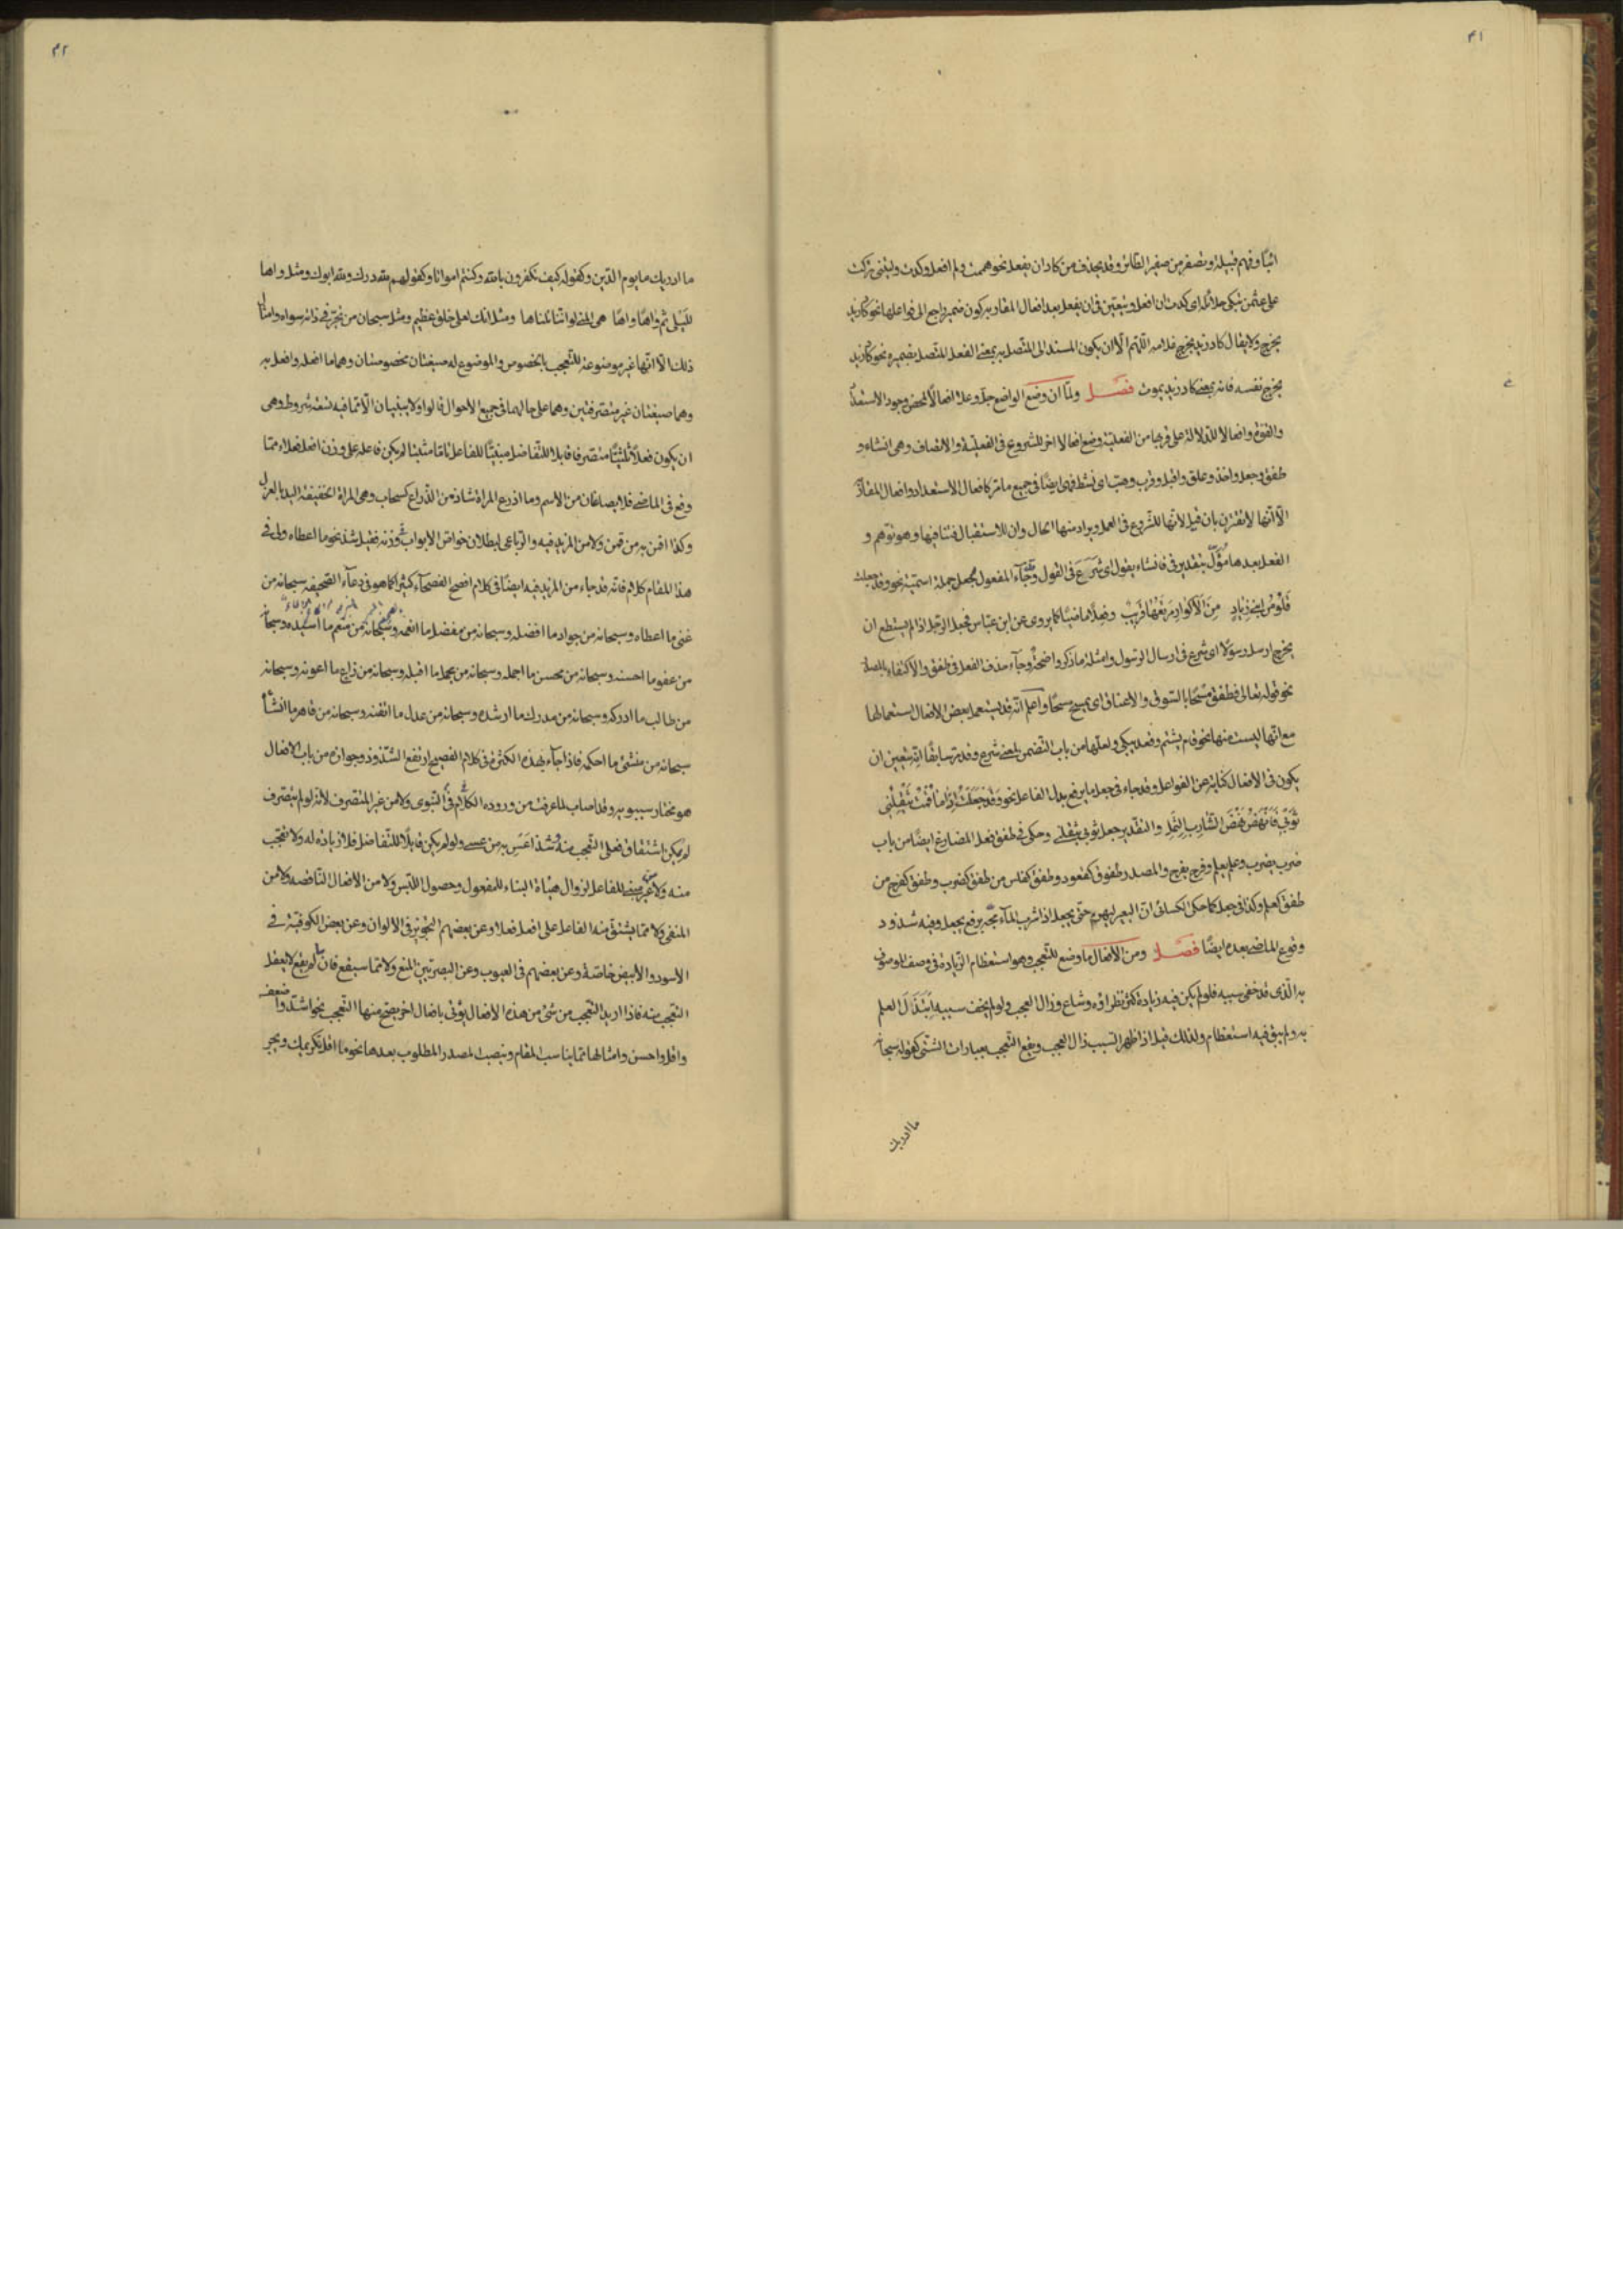 ٤١
اتيًا وفهم قبيلة وتصفر من صفير الطائر وقد يحذف من كاد ان يفعل نحو هممت ولم افعل وكدت وليتنى تركت
على عثمن تبكى حلائله اى كدت ان افعل ويتعين فى ان يفعل بعد افعال المقاربة كون ضمير راجع الى فواعلها نحو كاد زيد
يخرج ولا يقال كاد زيد يخرج غلامه اللهم الا ان يكون المسند الى المتصل به بمعنى الفعل المتصل بضميره نحو كاد زيد
يخرج نفسه فانه بمعنى كاد زيد يموت فصل ولما ان وضع الواضع جل وعلا افعالا لمحض وجود الاستعداد
والقوة وافعالا للدلالة على قربها من الفعلية وضع افعالا اخر للشروع فى الفعلية والاتصاف وهى انشاء و
طفق وجعل واخذ وعلق واقبل وقرب وهب اى نشط فهى ايضًا فى جميع ما مر كافعال الاستعداد وافعال المقاربة
الا انها لا تقترن بان قيل لانها للشروع فى العمل ويراد منها الحال وان للاستقبال فتنافيها وهو توهم و
الفعل بعدها مؤل بتقدير فى فانشاء يقول اى شرع فى القول وجاء المفعول لجعل جملة اسمية نحو وقد جعلت
قلوص ابنى زياد من الاكوار مرتعها قريب وفعلا ماضيًا كما يروى عن ابن عباس فجعل الرجل اذا لم يستطع ان
يخرج ارسل رسولا اى شرع فى ارسال الرسول وامثلة ما ذكر واضحة وجاء حذف الفعل فى طفق والاكتفاء بالمصدر
نحو قوله تعالى فطفق مسحًا بالسوق والاعناق اى يمسح مسحًا واعلم انه قد يستعمل بعض الافعال استعمالها
مع انها ليست منها نحو قام يشتم وقعد يبكى ولعلها من باب التضمن لمعنى شرع وقد مر سابقًا انه يتعين ان
يكون فى الافعال كناية عن الفواعل وقد جاء فى جعل ما يرفع بدل الفاعل نحو وقد جعلت اذا ما قمت يثقلنى
ثوبى فانهض نهض الشارب الثمل والتقدير جعل ثوبى يثقلنى وحكى فى طفق فعل المضارع ايضًا من باب
ضرب يضرب وعلم يعلم وفرح يفرح والمصدر طفوق كقعود وطفق كفلس من طفق كضرب وطفق كفرح من
طفق كعلم وكذا فى جعل كما حكى الكسائى ان البعير ليهرم حتى يجعل اذا شرب الماء مجه برفع يجعل وفيه شذوذ
وقوع الماضى بعده ايضًا فصل ومن الافعال ما وضع للتعجب وهو استعظام الزيادة فى وصف الموصوف
به الذى قد خفى سببه فلو لم يكن فيه زيادة كثر نظراؤه وشاع وزال العجب ولو لم يخف سببه ابتذل العلم
به ولم يبق فيه استعظام ولذلك قيل اذا ظهر السبب زال العجب ويقع التعجب بعبارات الشتى كقوله سبحانه
ما ادريك
٤٢
ما ادريك ما يوم الدين وكقوله كيف تكفرون بالله وكنتم امواتا وكقولهم لله درك ولله ابوك ومثل واها
لليلى ثم واهًا واهًا هى المنى لو اننا نلناها ومثل انك لعلى خلق عظيم ومثل سبحان من تحير فى ذاته سواه وامثال
ذلك الا انها غير موضوعة للتعجب بالخصوص والموضوع له صيغتان مخصوصتان وهما ما افعله وافعل به
وهما صيغتان غير متصرفتين وهما على حالهما فى جميع الاحوال قالوا ولا يبنيان الا مما فيه تسعة شروط وهى
ان يكون فعلا ثلثيًا متصرفا قابلا للتفاضل مبنيًا للفاعل تاما مثبتا لم يكن فاعله على وزن افعل فعلاء مما
وقع فى الماضى فلا يصاغان من الاسم وما اذرع المراة شاذ من الذراع كسحاب وهى المراة الخفيفة اليد بالغزل
وكذا اقمن به من قمن ولا من المزيد فيه والرباعى لبطلان خواص الابواب وزنه فقيل شذ نحو ما اعطاه ولى فى
هذا المقام كلام فانه قد جاء من المزيد فيه ايضًا فى كلام افصح الفصحاء كثيرا كما هو فى دعاء الصحيفة سبحانه من
غنى ما اعطاه وسبحانه من جواد ما افضله وسبحانه من مفضل ما انعمه وسبحانه من منعم ما اسيده وسبحانه
من عفو ما احسنه وسبحانه من محسن ما اجمله وسبحانه من مجمل ما اقبله وسبحانه من ما اعونه وسبحانه
من طالب ما ادركه وسبحانه من مدرك ما ارشده وسبحانه من عدل ما اتقنه وسبحانه من قاهر ما انشأه
سبحانه من منشئ ما احكمه فاذا جاء بهذه الكثرة فى كلام الفصيح ارتفع الشذوذ وجوازه من باب الافعال
هو مختار سيبويه وقد اصاب لما عرفت من وروده الكلام فى النبوى ولا من غير المتصرف لانه لو لم يتصرف
لم يكن اشتقاق فعلى التعجب منه وشذ اعس به من عسى ولو لم يكن قابلا للتفاضل فلا زيادة له ولا تعجب
منه ولا من غير مبنى للفاعل لزوال هيأة البناء للمفعول وحصول اللبس ولا من الافعال الناقصة ولا من
المنفى ولا مما يشتق منه الفاعل على افعل فعلاء وعن بعضهم التجويز فى الالوان وعن بعض الكوفية فى
الاسود والابيض خاصة وعن بعضهم فى العيوب وعن البصريين المنع ولا مما سيقع فان ما لم يقع لا يعقل
التعجب منه فاذا اريد التعجب من شئ من هذه الافعال يؤتى بافعال اخر يصح منها التعجب نحو اشد واضعف
واقل واحسن وامثالها مما يناسب المقام وينصب المصدر المطلوب بعدها نحو ما اقل تكريمك ويجر